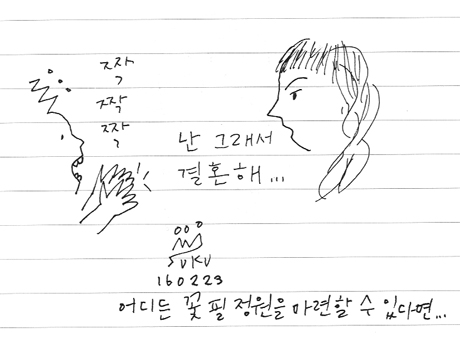 짝
짝
짝
난 그래서
결혼해...
SUKU
160223
어디든 꽃 필 정원을 마련할 수 있다면...